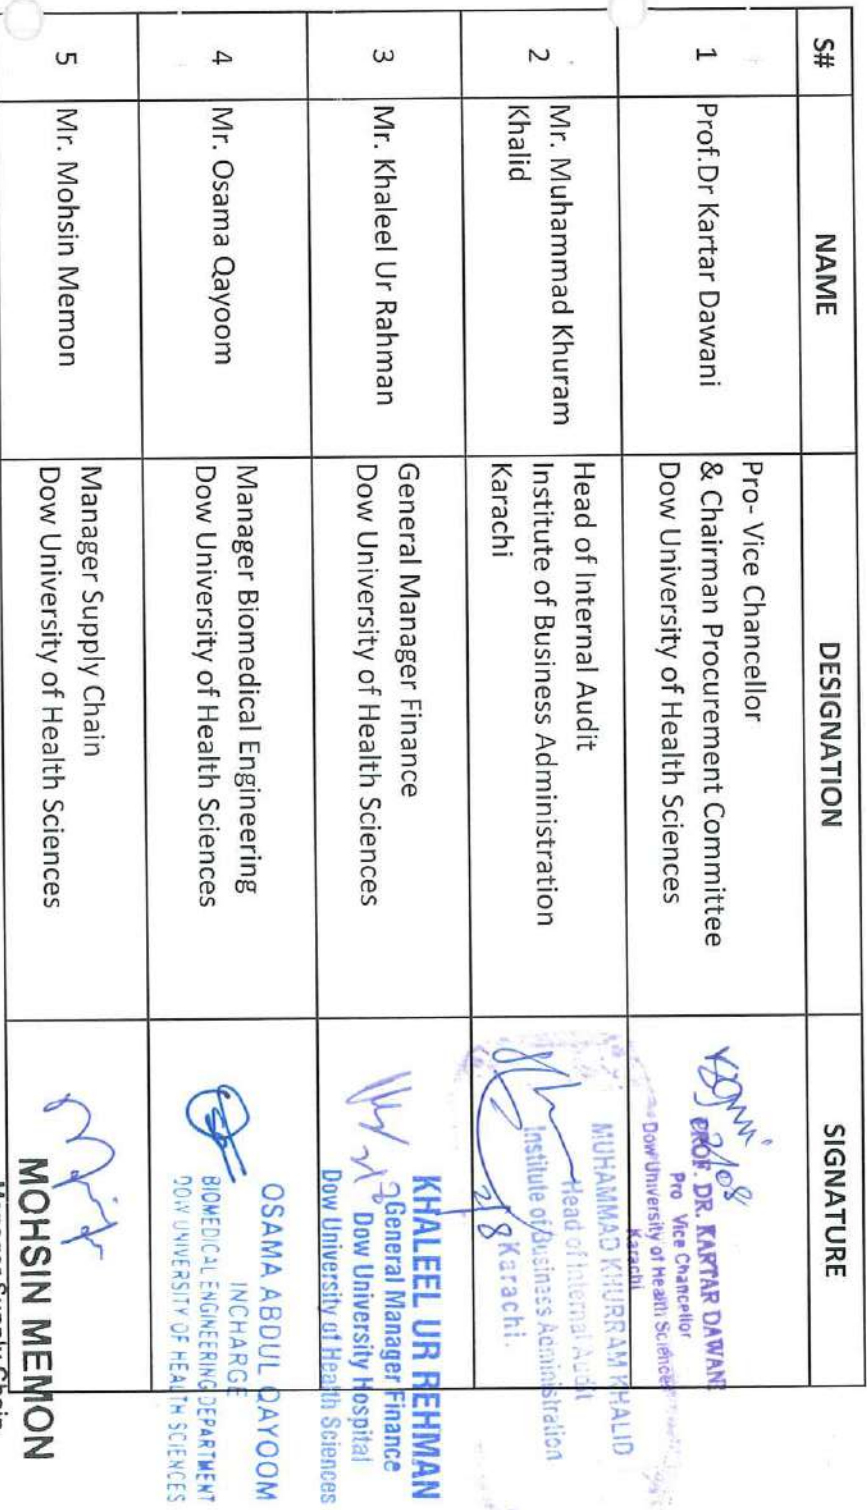 S# NAME DESIGNATION SIGNATURE
1 Prof.Dr Kartar Dawani
Pro- Vice Chancellor
& Chairman Procurement Committee
Dow University of Health Sciences
2/08
PROF. DR. KARTAR DAWANI
Pro Vice Chancellor
Dow University of Health Sciences
Karachi
2 Mr. Muhammad Khuram
Khalid
Head of Internal Audit
Institute of Business Administration
Karachi
MUHAMMAD KHURRAM KHALID
Head of Internal Audit
Institute of Business Administration
Karachi.
2/8
3 Mr. Khaleel Ur Rahman
General Manager Finance
Dow University of Health Sciences
KHALEEL UR REHMAN
General Manager Finance
Dow University Hospital
Dow University of Health Sciences
4 Mr. Osama Qayoom
Manager Biomedical Engineering
Dow University of Health Sciences
OSAMA ABDUL QAYOOM
INCHARGE
BIOMEDICAL ENGINEERING DEPARTMENT
DOW UNIVERSITY OF HEALTH SCIENCES
5 Mr. Mohsin Memon
Manager Supply Chain
Dow University of Health Sciences
MOHSIN MEMON
Manager Supply Chain